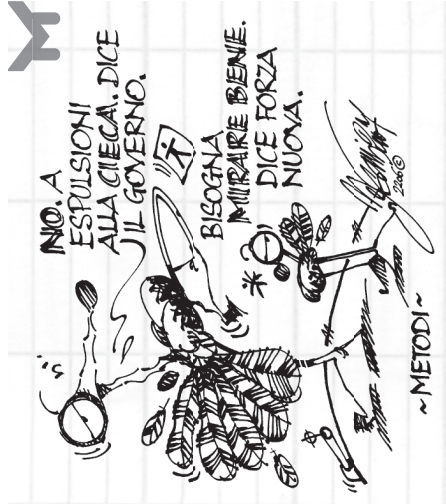 NO. A
ESPULSIONI
ALLA CIECA. DICE
IL GOVERNO.
BISOGNA
MIRARE BENE.
DICE FORZA
NUOVA.
~METODI~